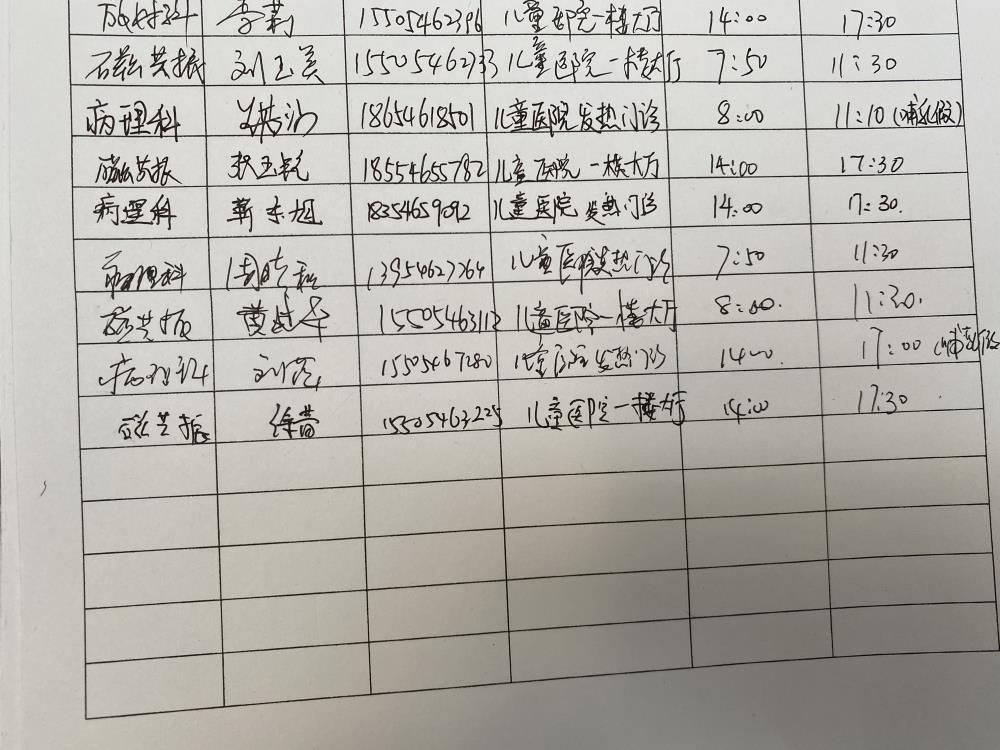 放射科 李莉 15505462396 儿童医院一楼大厅 14:00 17:30
磁共振 刘玉美 15505462933 儿童医院一楼大厅 7:50 11:30
病理科 18654618501 儿童医院发热门诊 8:00 11:10(哺乳假)
磁共振 18554655782 儿童医院一楼大厅 14:00 17:30
病理科 靳东旭 18354659092 儿童医院发热门诊 14:00 17:30.
病理科 13954627264 儿童医院发热门诊 7:50 11:30
磁共振 15505463112 儿童医院一楼大厅 8:00. 11:30.
病理科 15505467280 儿童医院发热门诊 14:00 17:00 (哺乳假
磁共振 徐蕾 15505463225 儿童医院一楼大厅 14:00 17:30